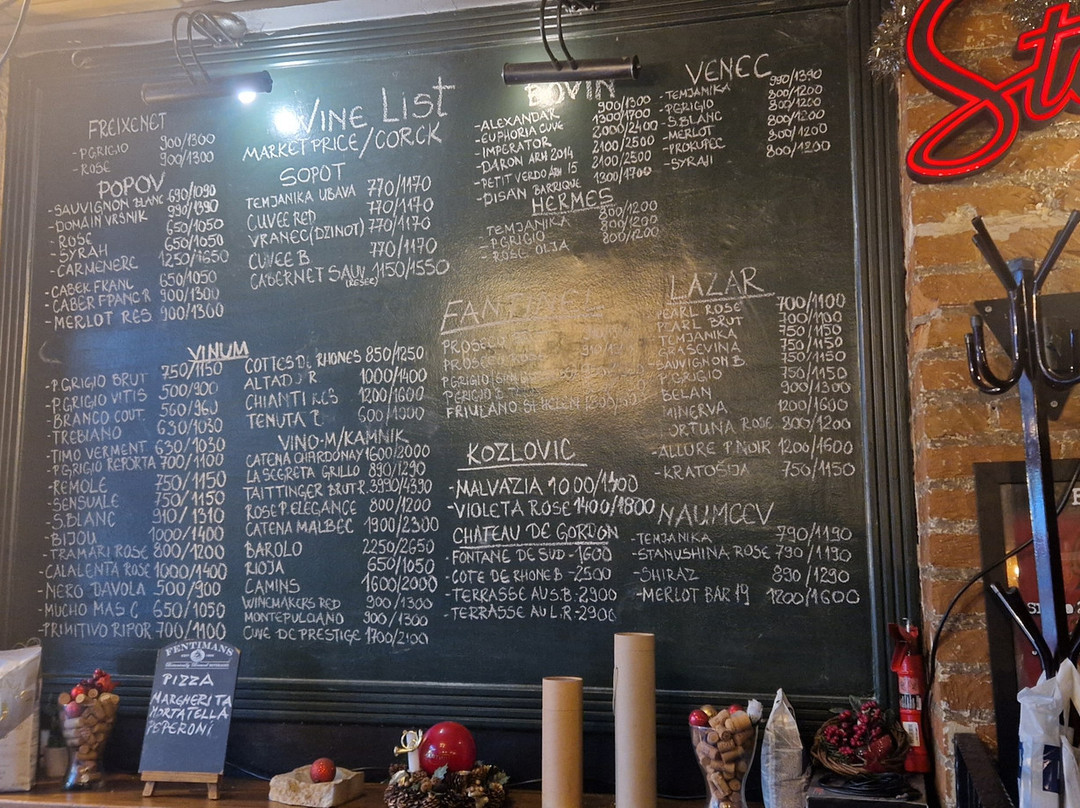 WINE LIST
MARKET PRICE/CORCK
FREIXENET
- P.GRIGIO 900/1300
- ROSE 900/1300
POPOV
- SAUVIGNON BLANC 690/1090
- DOMAIN VRSNIK 990/1390
- ROSE 650/1050
- SYRAH 650/1050
- CARMENERE 1250/1650
- CABER FRANC 650/1050
- CABER FRANC R 900/1300
- MERLOT RES 900/1300
VINUM
- P.GRIGIO BRUT 750/1150
- P.GRIGIO VITIS 500/900
- BRANCO COUT. 560/960
- TREBIANO 630/1030
- TIMO VERMENT 630/1030
- P.GRIGIO REPORTA 700/1100
- REMOLE 750/1150
- SENSUALE 750/1150
- S.BLANC 910/1310
- BIJOU 1000/1400
- TRAMARI ROSE 800/1200
- CALALENTA ROSE 1000/1400
- NERO DAVOLA 500/900
- MUCHO MAS C. 650/1050
- PRIMITIVO RIPOR 700/1100
SOPOT
TEMJANIKA UBAVA 770/1170
CUVEE RED 770/1170
VRANEC (DZINOT) 770/1170
CUVEE B 770/1170
CABERNET SAUV. 1150/1550
COTTES D. RHONES 850/1250
ALTAD R 1000/1400
CHIANTI 1200/1600
TENUTA 600/1000
VINO-M/KAMNIK
CATENA CHARDONAY 1600/2000
LA SEGRETA GRILLO 890/1290
TAITTINGER BRUT R. 3990/4390
ROSE P.ELEGANCE 800/1200
CATENA MALBEC 1900/2300
BAROLO 2250/2650
RIOJA 650/1050
CAMINS 1600/2000
WINEMAKERS RED 900/1300
MONTEPULCIANO 900/1300
CUVE DE PRESTIGE 1700/2100
BOVIN
- ALEXANDAR 900/1300
- EUPHORIA CUVE 1300/1700
- IMPERATOR 2000/2400
- DARON ARM 2014 2100/2500
- PETIT VERDO ARM 15 2100/2500
- DISAN BARRIQUE 1300/1700
HERMES
TEMJANIKA 800/1200
- P.GRIGIO 800/1200
- ROSE OLJA 800/1200
PROSECCO
PROSECCO
P.GRIGIO
P.GRIGIO
FRIULANO ST HELEN
KOZLOVIC
- MALVAZIA 1000/1400
- VIOLETA ROSE 1400/1800
CHATEAU DE GORDON
- FONTANE DE SUD - 1600
- COTE DE RHONE B - 2500
- TERRASSE AU S.B. - 2900
- TERRASSE AU L.R. - 2900
VENEC
- TEMJANIKA 990/1390
- P.GRIGIO 800/1200
- S.BLANC 800/1200
- MERLOT 800/1200
- PROKUPEC 800/1200
- SYRAJI 800/1200
LAZAR
PEARL ROSE 700/1100
PEARL BRUT 700/1100
TEMJANIKA 750/1150
GRASEVINA 750/1150
SAUVIGNON B. 750/1150
P.GRIGIO 750/1150
BELAN 900/1300
MINERVA 1200/1600
FORTUNA ROSE 800/1200
- ALLURE P.NOIR 1200/1600
- KRATOŠIJA 750/1150
NAUMCEV
- TEMJANIKA 790/1190
- STANUSHINA ROSE 790/1190
- SHIRAZ 890/1290
- MERLOT BAR 19 1200/1600
St
FENTIMANS
PIZZA
MARGHERITA
MORTATELLA
PEPERONI